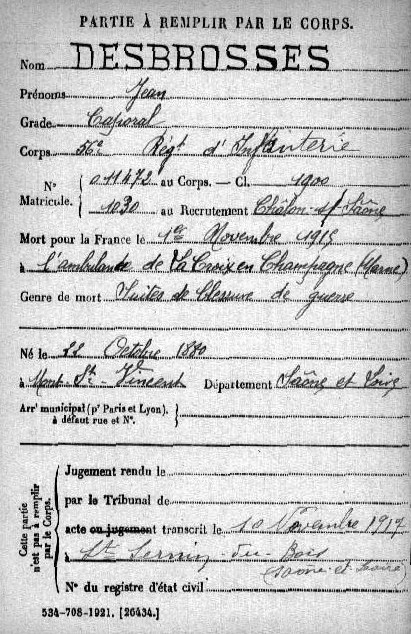 PARTIE À REMPLIR PAR LE CORPS.
Nom DESBROSSES
Prénoms Jean
Grade Caporal
Corps 56e Régt d'Infanterie
N° Matricule. { 011472 au Corps. — Cl. 1900
1030 au Recrutement Châlon s/ Saône
Mort pour la France le 1er Novembre 1915
à l'ambulance de La Croix en Champagne (Marne)
Genre de mort Suites de blessure de guerre
Né le 22 Octobre 1880
à Mont-St-Vincent Département Saône et Loire
Arrt municipal (pr Paris et Lyon), à défaut rue et N°. }
Cette partie n'est pas à remplir par le Corps.
Jugement rendu le
par le Tribunal de
acte ou jugement transcrit le 10 Novembre 1917
à St Sernin-du-Bois
(Saône-et-Loire)
N° du registre d'état civil
534-708-1921. [26434.]